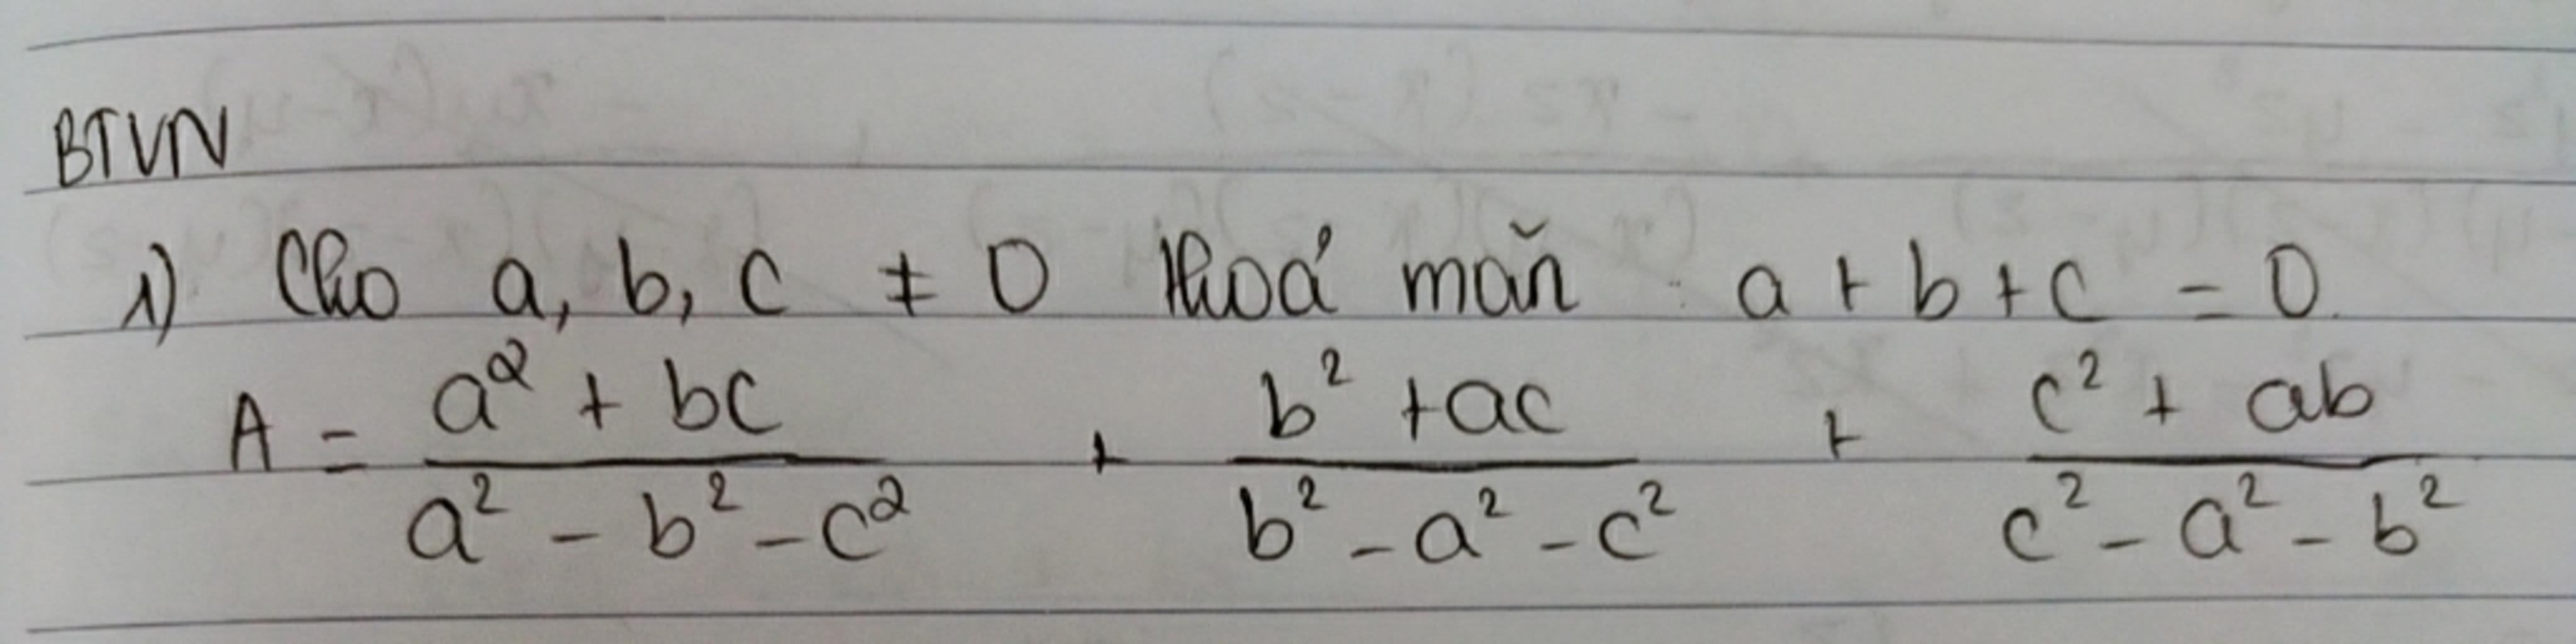 BTVN
1) Cho a, b, c ≠ 0 thoả mãn : a + b + c = 0.
A = (a² + bc)/(a² - b² - c²) + (b² + ac)/(b² - a² - c²) + (c² + ab)/(c² - a² - b²)